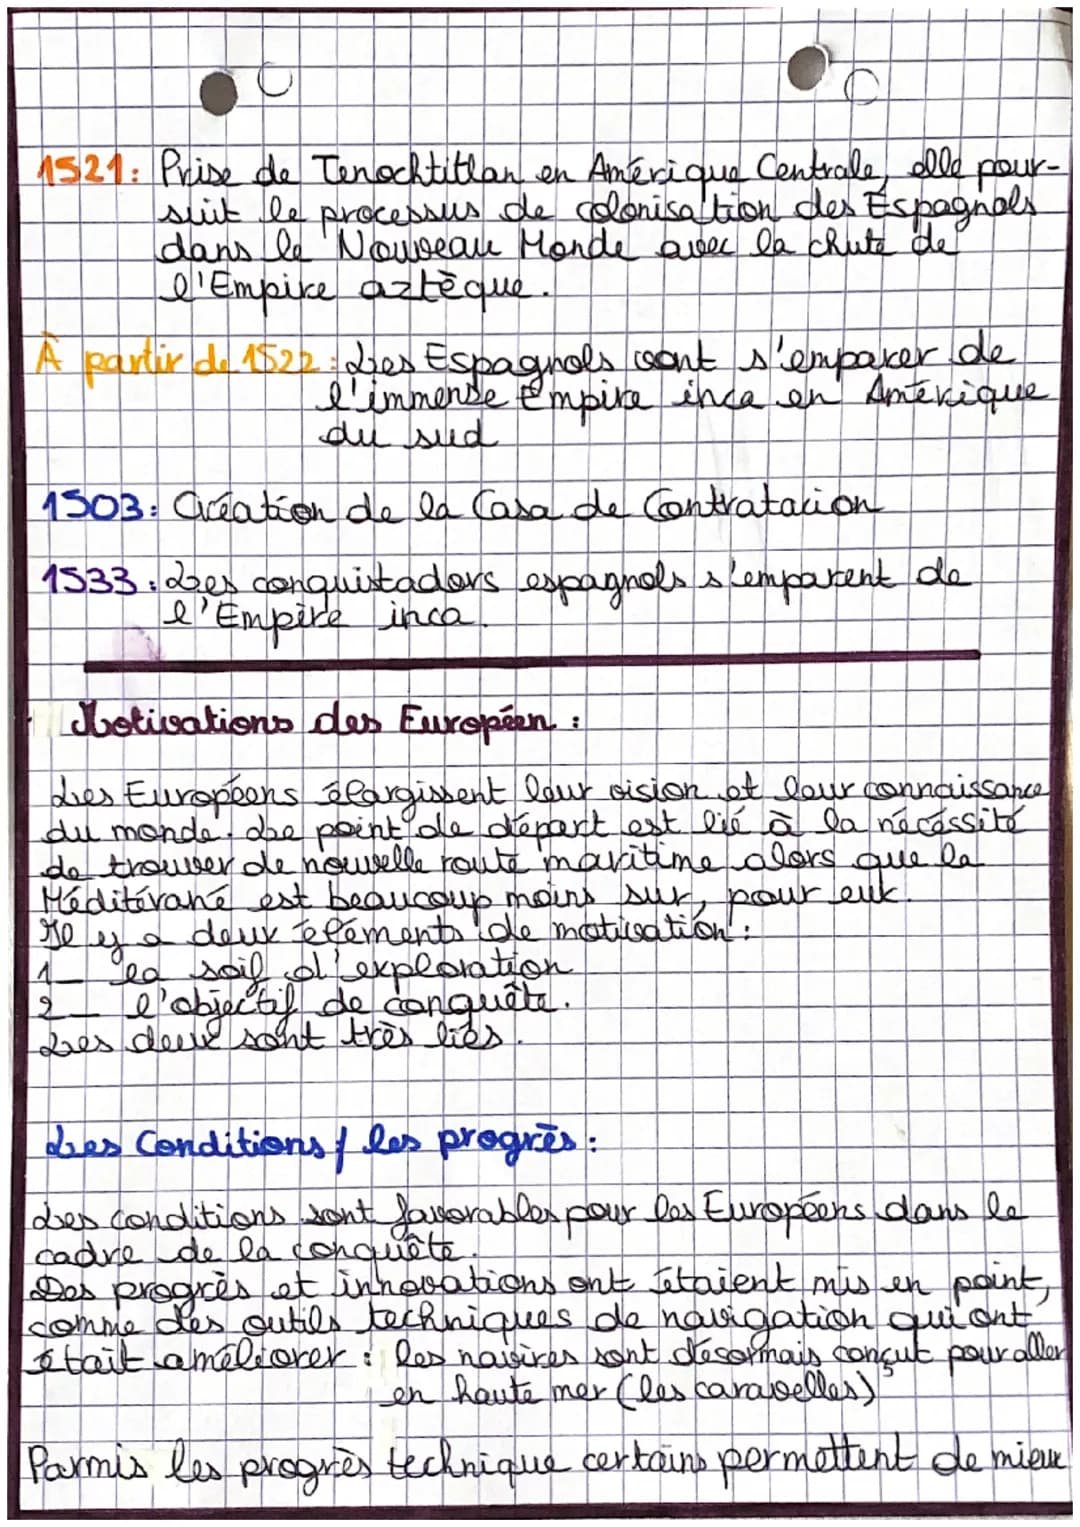 1521: Prise de Tenochtitlan en Amérique Centrale, elle pour-
suit le processus de colonisation des Espagnols
dans le Nouveau Monde avec la chute de
l'Empire aztèque.
À partir de 1522 : Les Espagnols vont s'emparer de
l'immense Empire inca en Amérique
du sud
1503: Création de la Casa de Contratacion
1533 : Les conquistadors espagnols s'emparent de
l'Empire inca.
Motivations des Européen :
Les Européens élargissent leur vision et leur connaissance
du monde. Le point de départ est lié à la nécéssité
de trouver de nouvelle route maritime alors que la
Méditérané est beaucoup moins sur, pour eux.
Il y a deux éléments de motivation :
1_ la soif d'exploration
2_ l'objectif de conquête.
Les deux sont très liés.
Les Conditions / les progrès :
Les conditions sont favorables pour les Européens dans le
cadre de la conquête.
Des progrès et innovations ont étaient mis en point,
comme des outils techniques de navigation qui ont
était améliorer : les navires sont désormais conçut pour aller
en haute mer (les caravelles)
Parmis les progrès technique certains permettent de mieux